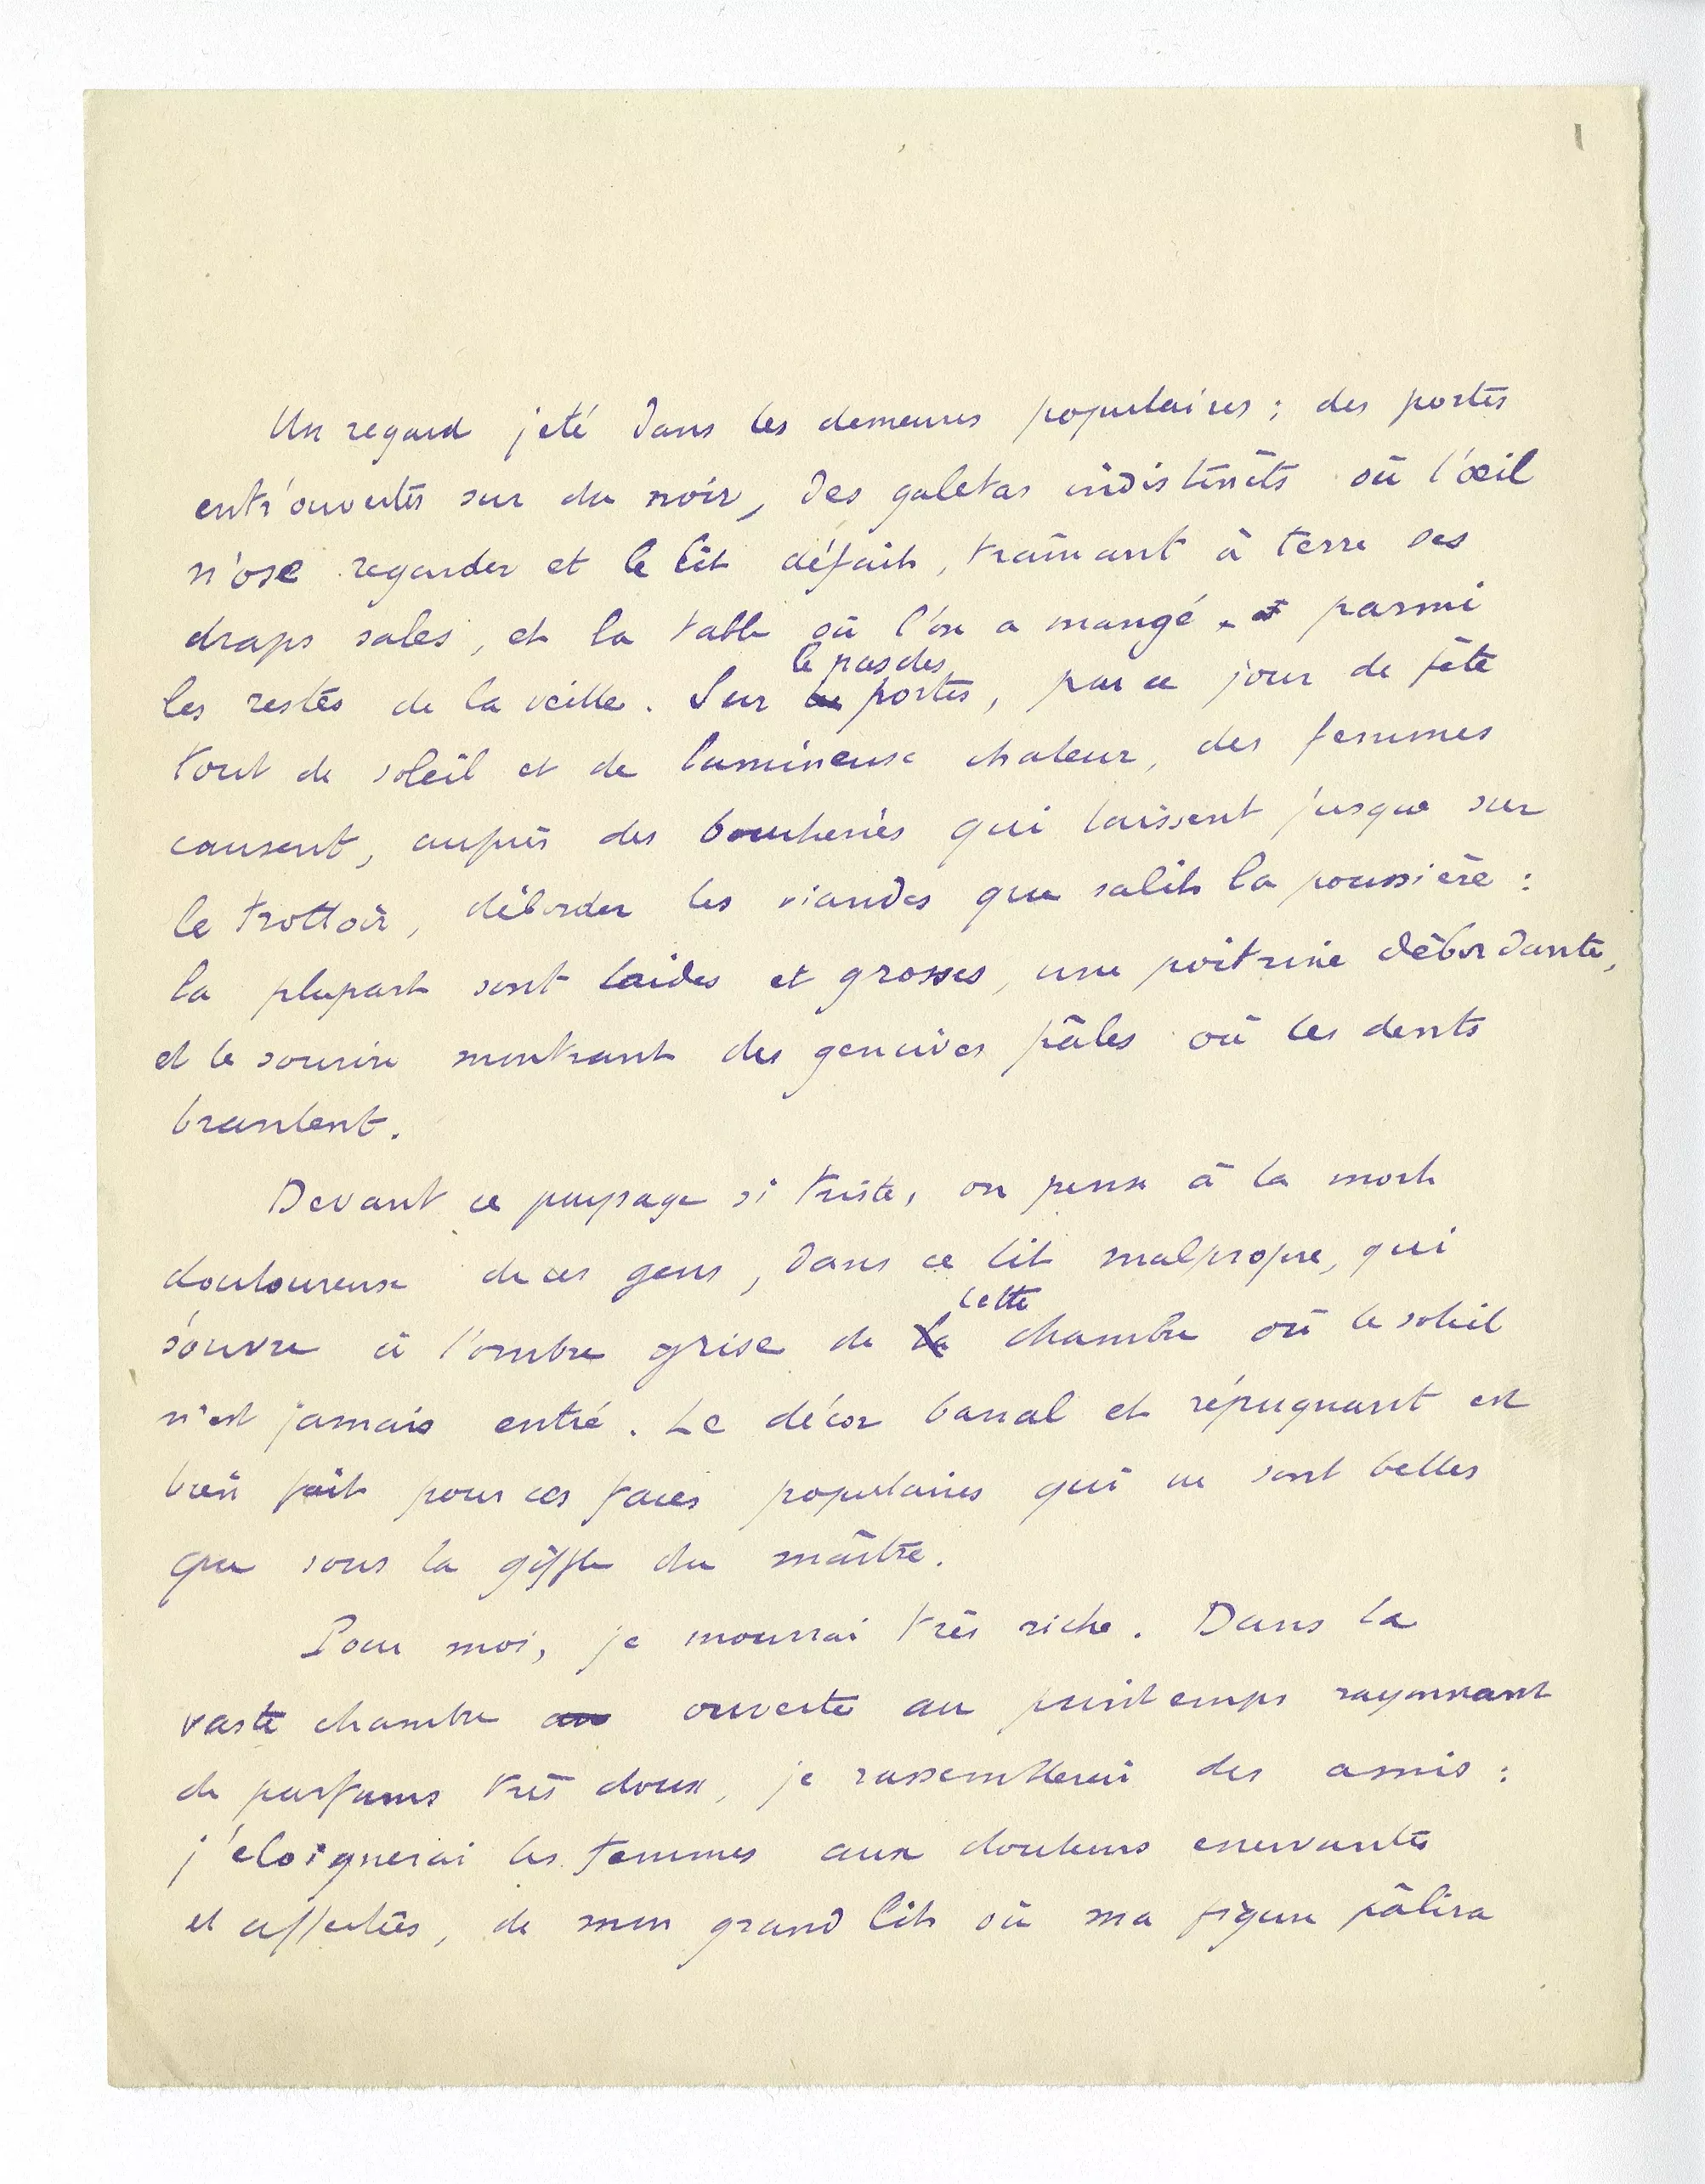 Un regard jeté dans les demeures populaires ; des portes
entr'ouvertes sur du noir, des galetas indistincts où l'œil
n'ose regarder et le lit défait, traînant à terre ses
draps sales, et la table où l'on a mangé parmi
le pas des
les restes de la veille. Sur les portes, par ce jour de fête
tout de soleil et de lumineuse chaleur, des femmes
causent, auprès des boucheries qui laissent jusque sur
le trottoir, déborder les viandes que salit la poussière :
la plupart sont laides et grosses, une poitrine débordante,
et le sourire montrant des gencives pâles où les dents
branlent.
Devant ce paysage si triste, on pense à la mort
douloureuse de ces gens, dans ce lit malpropre, qui
cette
s'ouvre à l'ombre grise de la chambre où le soleil
n'est jamais entré. Le décor banal et répugnant est
bien fait pour ces faces populaires qui ne sont belles
que sous la giffle du maître.
Pour moi, je mourrai très riche. Dans la
vaste chambre au ouverte au printemps rayonnant
de parfums très doux, je rassemblerai des amis :
j'éloignerai les femmes aux douleurs enervantes
et affectées, de mon grand lit où ma figure pâlira